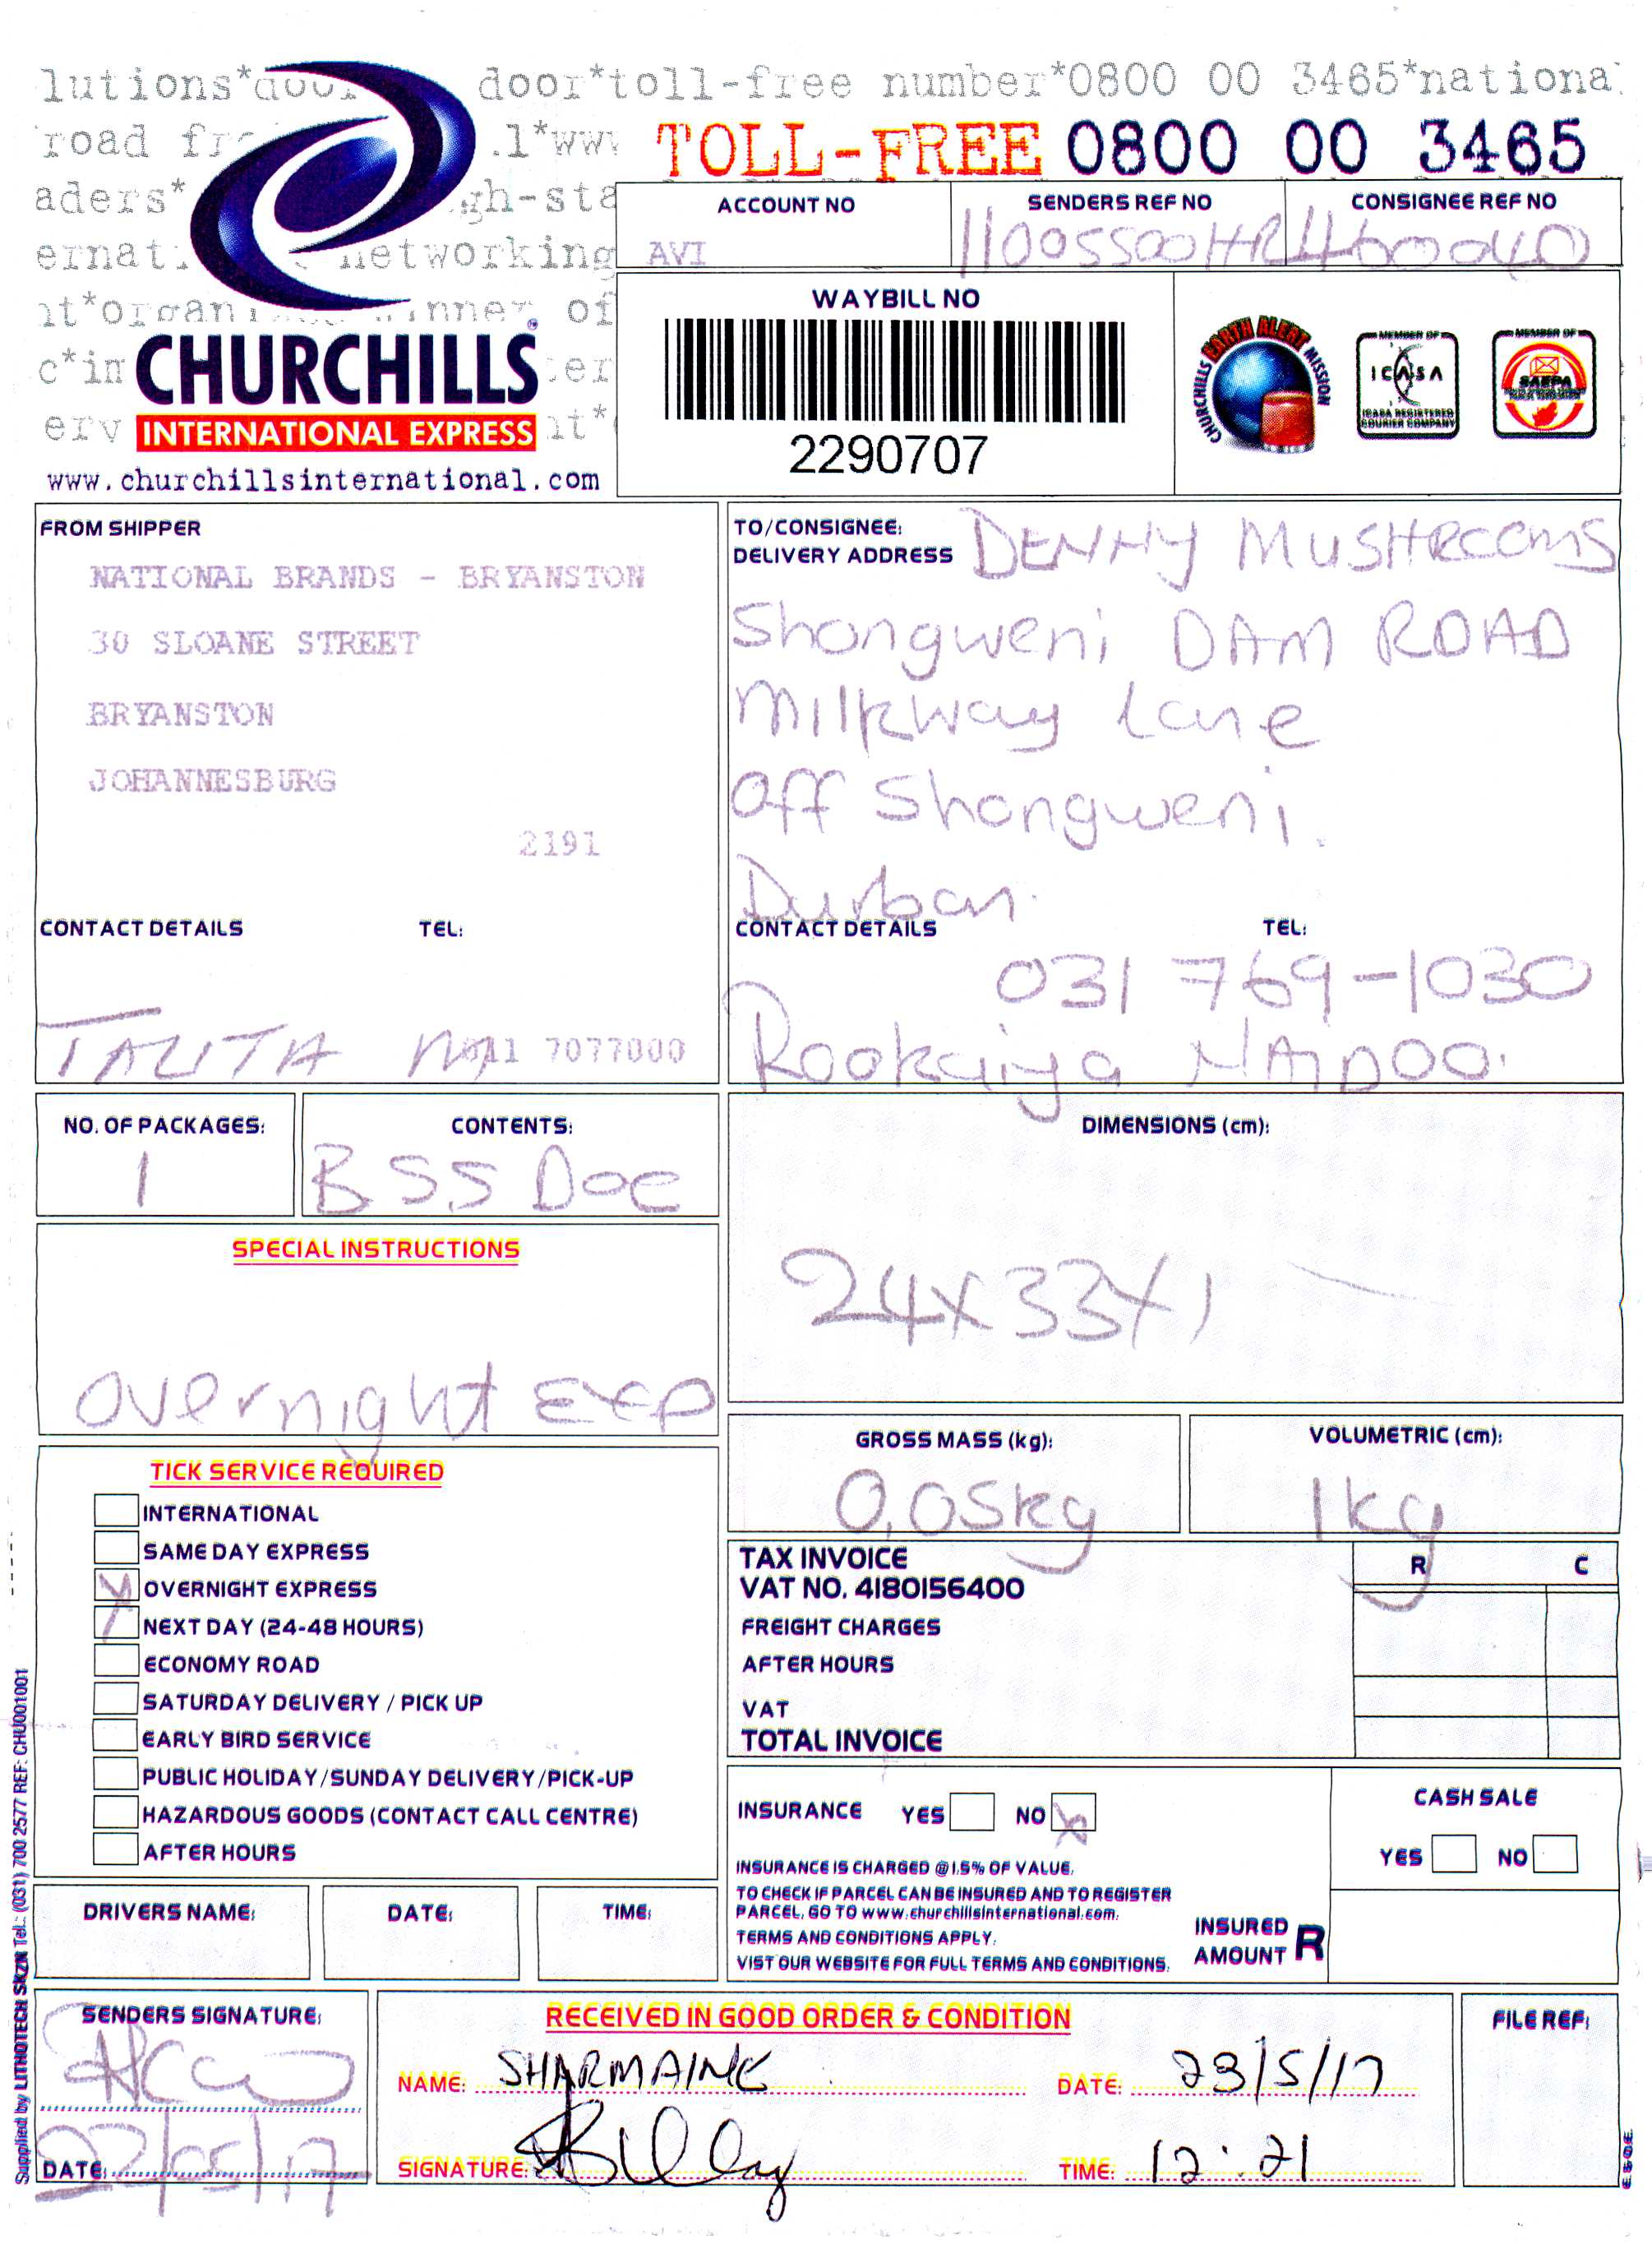 lutions*door door*toll-free number*0800 00 3465*national
road .l*www
TOLL-FREE 0800 00 3465
aders* gh-sta
ernati networking
nt*organi inner of
c*in
erv
CHURCHILLS
INTERNATIONAL EXPRESS
www.churchillsinternational.com
ACCOUNT NO SENDERS REF NO CONSIGNEE REF NO
AVI
WAYBILL NO
2290707
CHURCHILLS EARTH ALERT MISSION
MEMBER OF
ICASA
ICASA REGISTERED
COURIER COMPANY
MEMBER OF
SAEPA
FROM SHIPPER
NATIONAL BRANDS - BRYANSTON
30 SLOANE STREET
BRYANSTON
JOHANNESBURG
2191
CONTACT DETAILS TEL:
TALITA 011 7077000
TO/CONSIGNEE: DENNY MUSHROOMS
DELIVERY ADDRESS
Shongweni DAM ROAD
Milkway Lane
Off Shongweni.
Durban.
CONTACT DETAILS TEL:
031 769-1030
Rookaiya NAIDOO.
NO. OF PACKAGES: CONTENTS:
1 BSS Doc
DIMENSIONS (cm):
24x33x1
SPECIAL INSTRUCTIONS
Overnight Exp
GROSS MASS (kg): VOLUMETRIC (cm):
0,05kg 1kg
TICK SERVICE REQUIRED
INTERNATIONAL
SAME DAY EXPRESS
X OVERNIGHT EXPRESS
NEXT DAY (24-48 HOURS)
ECONOMY ROAD
SATURDAY DELIVERY / PICK UP
EARLY BIRD SERVICE
PUBLIC HOLIDAY/SUNDAY DELIVERY/PICK-UP
HAZARDOUS GOODS (CONTACT CALL CENTRE)
AFTER HOURS
TAX INVOICE R C
VAT NO. 4180156400
FREIGHT CHARGES
AFTER HOURS
VAT
TOTAL INVOICE
INSURANCE YES NO X
INSURANCE IS CHARGED @1,5% OF VALUE.
TO CHECK IF PARCEL CAN BE INSURED AND TO REGISTER
PARCEL, GO TO www.churchillsinternational.com.
TERMS AND CONDITIONS APPLY.
VIST OUR WEBSITE FOR FULL TERMS AND CONDITIONS.
INSURED
AMOUNT R
CASH SALE
YES NO
DRIVERS NAME: DATE: TIME:
SENDERS SIGNATURE:
DATE: 22/05/17
RECEIVED IN GOOD ORDER & CONDITION
NAME: SHARMAINE DATE: 23/5/17
SIGNATURE: TIME: 12:21
FILE REF:
E&OE
Supplied by LITHOTECH SKZN Tel: (031) 700 2577 REF: CHU001001